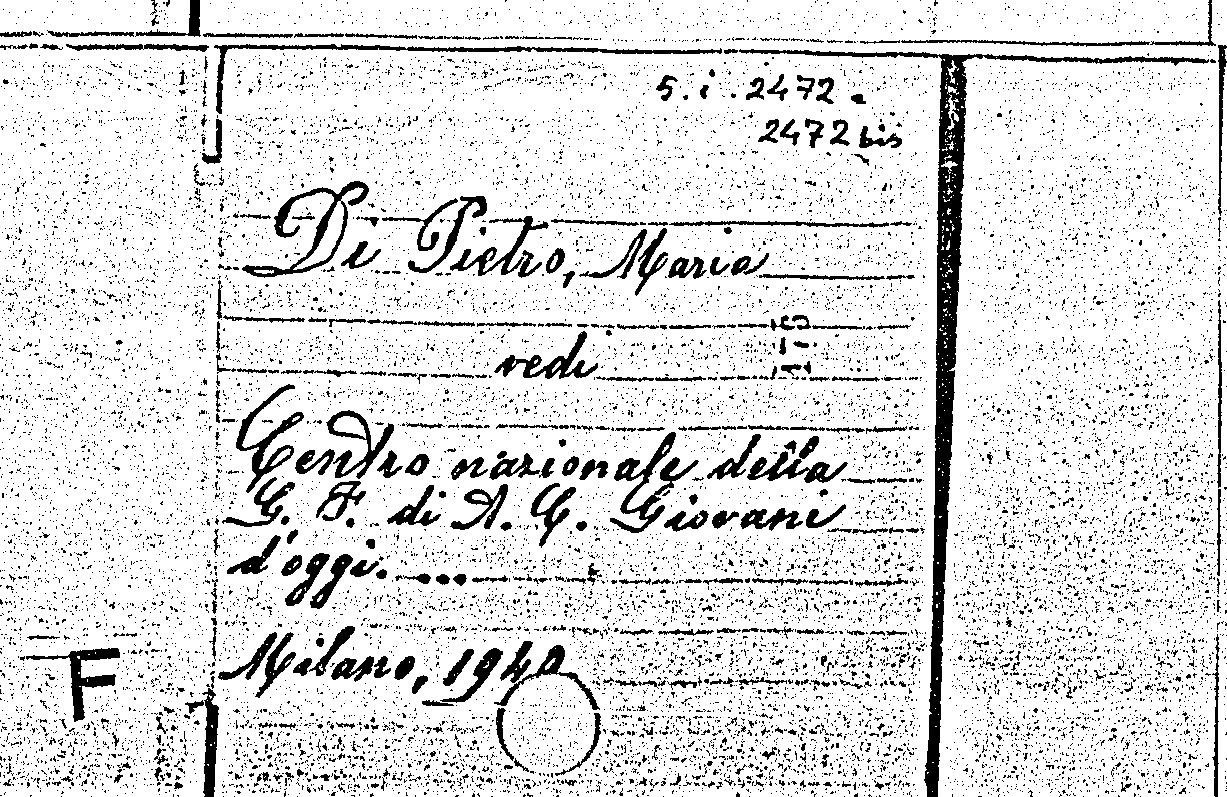 5. i. 2472.
2472 bis
Di Pietro, Maria
vedi
Centro nazionale della
G. F. di A. C. Giovani
d'oggi. ...
Milano, 1940
F